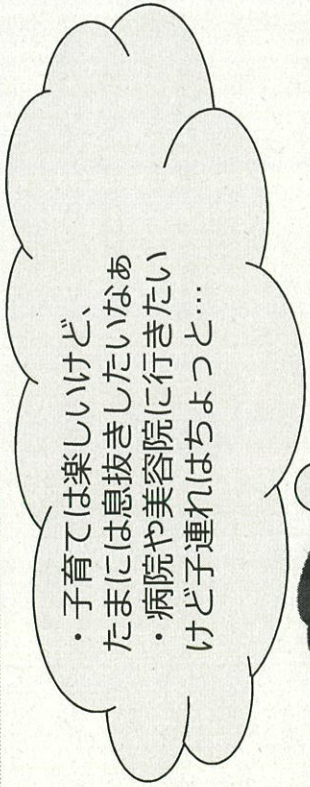 ・子育ては楽しいけど、
たまには息抜きしたいなぁ
・病院や美容院に行きたい
けど子連れはちょっと…